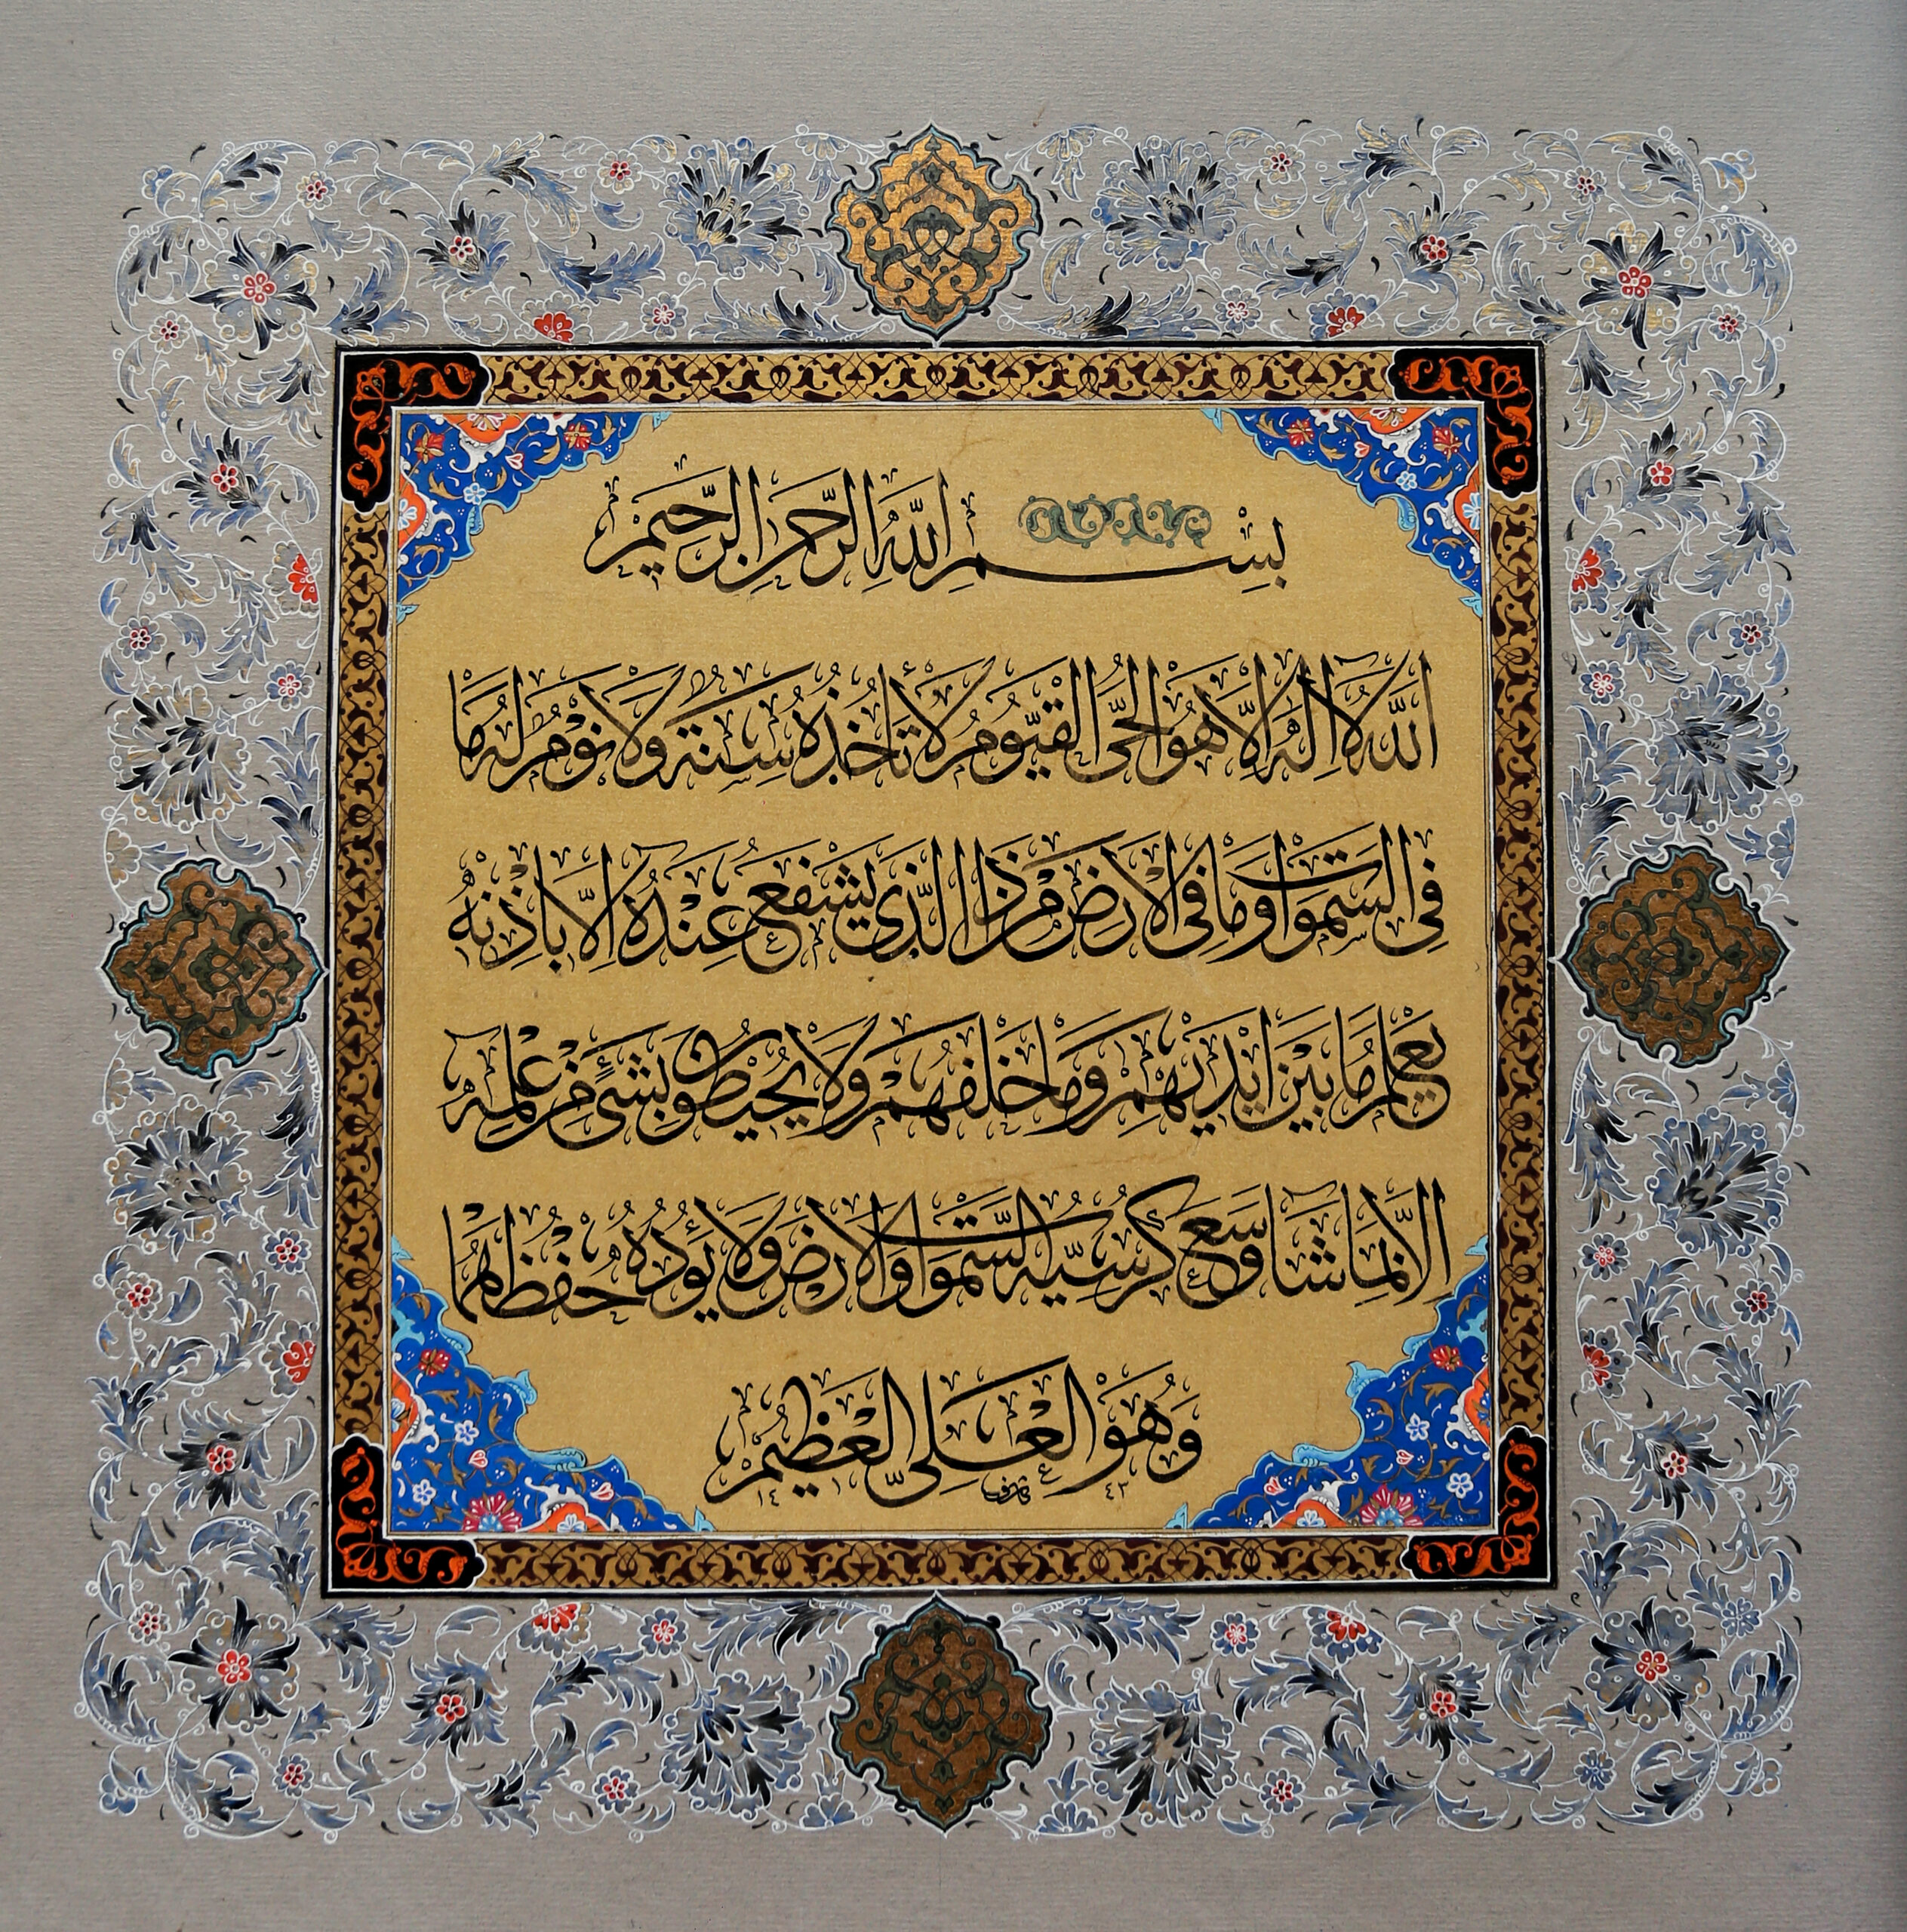 بِسْمِ اللَّهِ الرَّحْمَنِ الرَّحِيمِ
اللَّهُ لَا إِلَهَ إِلَّا هُوَ الْحَيُّ الْقَيُّومُ لَا تَأْخُذُهُ سِنَةٌ وَلَا نَوْمٌ لَهُ مَا
فِي السَّمَوَاتِ وَمَا فِي الْأَرْضِ مَنْ ذَا الَّذِي يَشْفَعُ عِنْدَهُ إِلَّا بِإِذْنِهِ
يَعْلَمُ مَا بَيْنَ أَيْدِيهِمْ وَمَا خَلْفَهُمْ وَلَا يُحِيطُونَ بِشَيْءٍ مِنْ عِلْمِهِ
إِلَّا بِمَا شَاءَ وَسِعَ كُرْسِيُّهُ السَّمَوَاتِ وَالْأَرْضَ وَلَا يَؤُدُهُ حِفْظُهُمَا
وَهُوَ الْعَلِيُّ الْعَظِيمُ